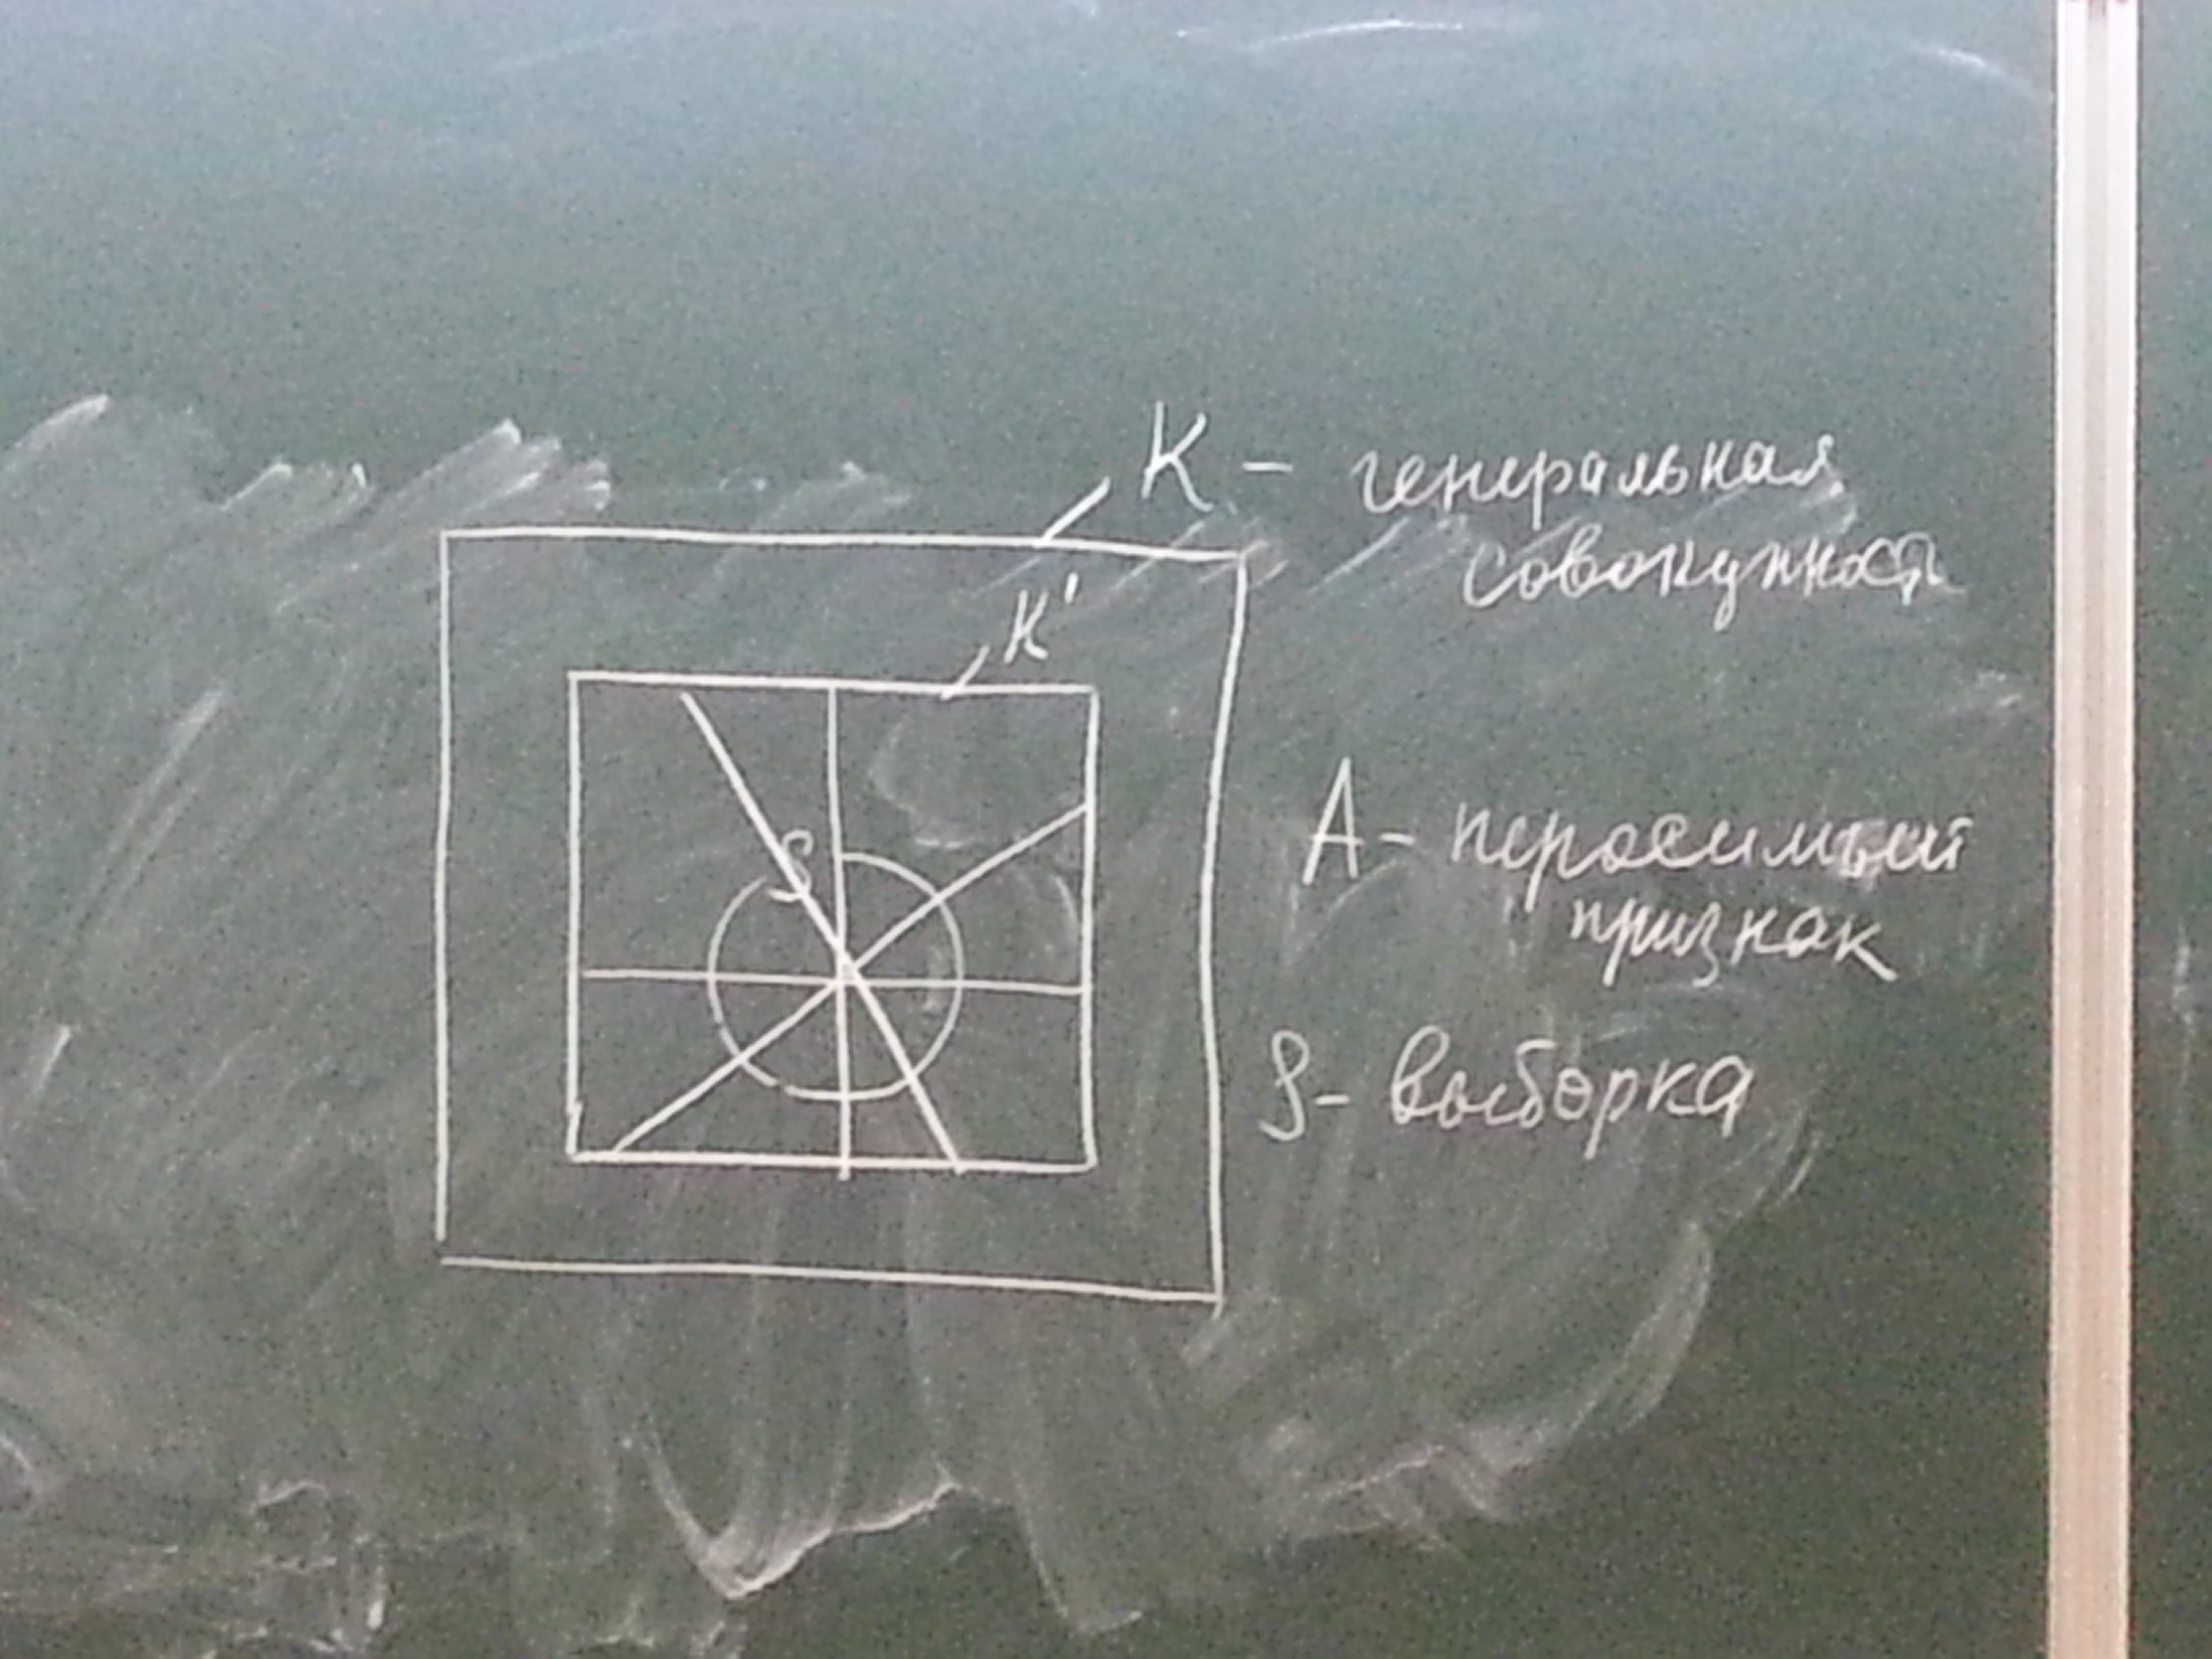 K - генеральная
совокупность
K'
S
A - переносимый
признак
S - выборка